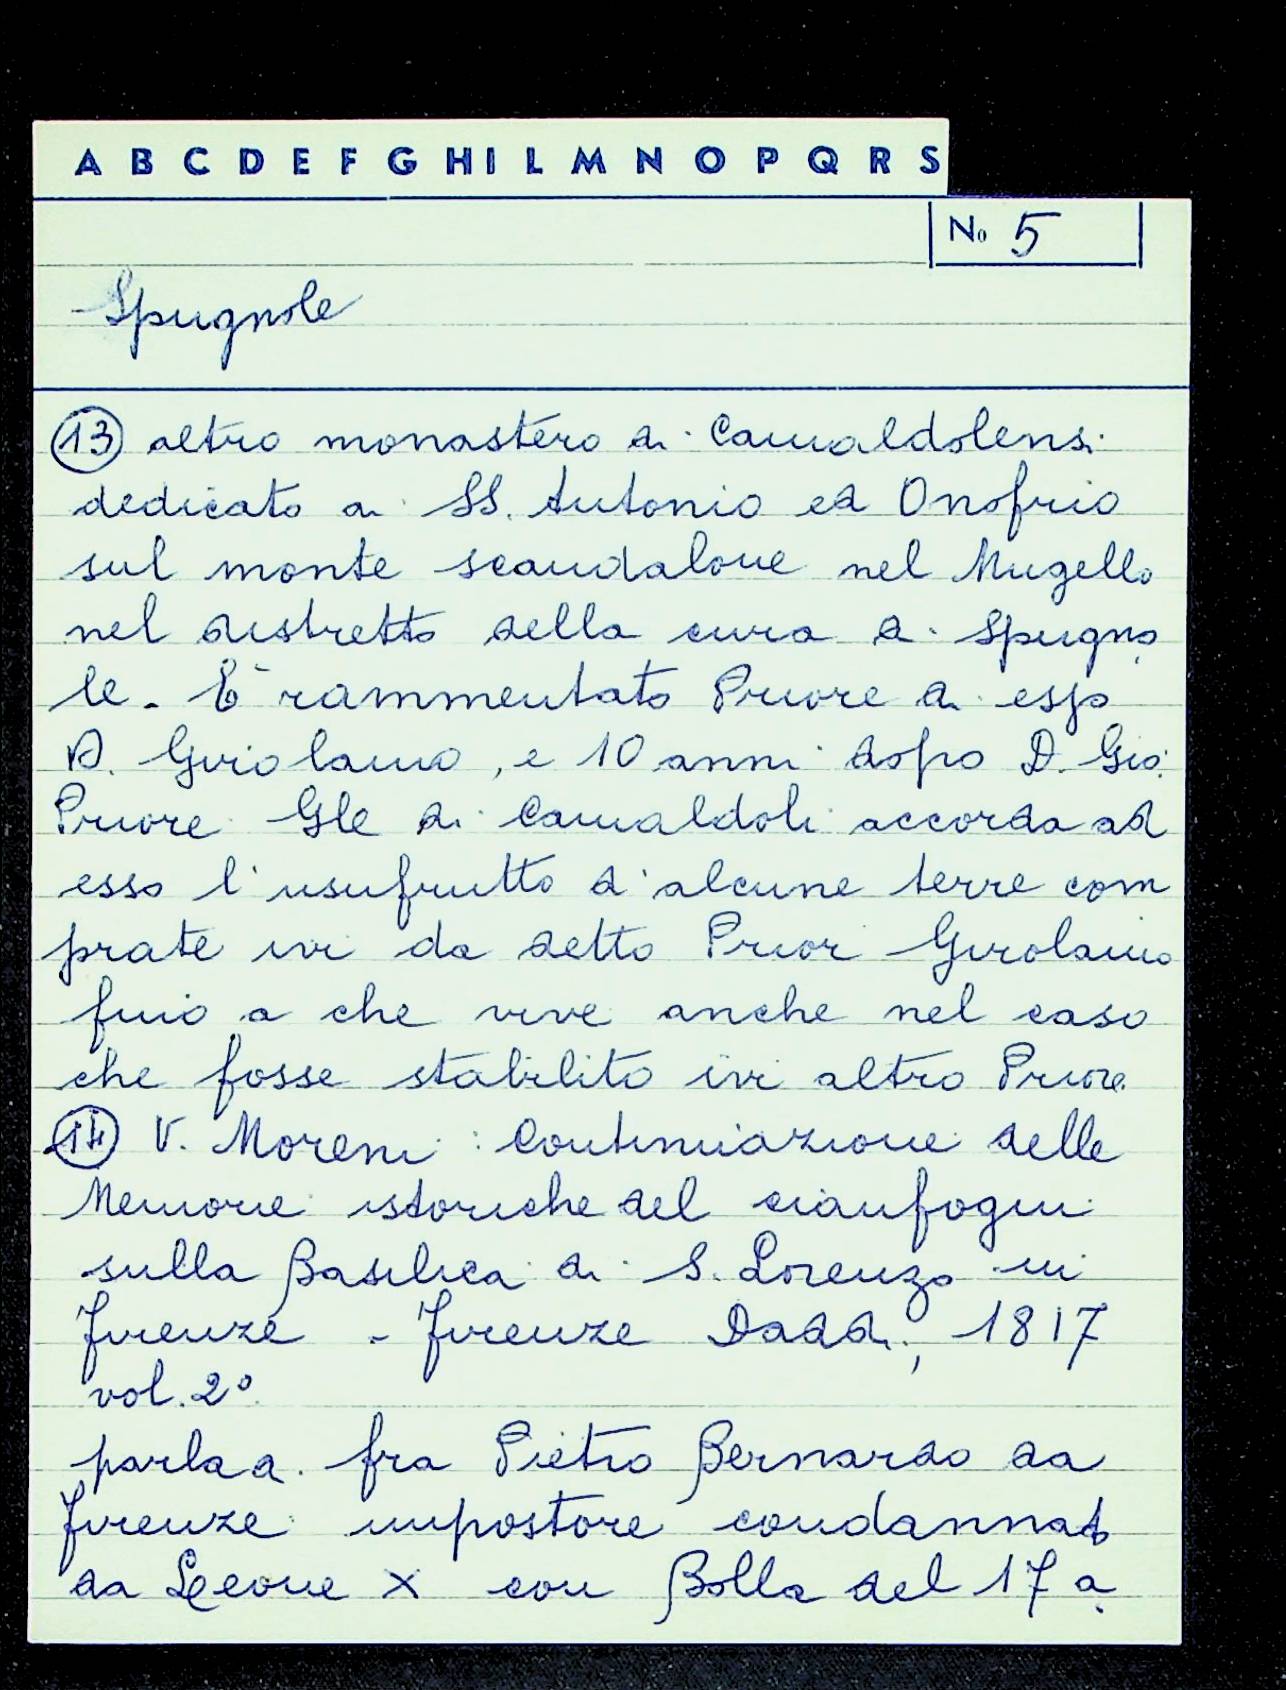 A B C D E F G H I L M N O P Q R S
No 5
Spugnole
13 altro monastero di Camaldolensi
dedicato a SS. Antonio ed Onofrio
sul monte scandalone nel Mugello
nel distretto della cura di Spugno
le. È rammentato Priore di esso
D. Girolamo, e 10 anni dopo D. Gio:
Priore Gle di Camaldoli accorda ad
esso l'usufrutto d'alcune terre com
prate ivi da detto Prior Girolamo
fino a che vive anche nel caso
che fosse stabilito ivi altro Priore
14 V. Moreni: Continuazione delle
Memorie istoriche del cianfogni
sulla Basilica di S. Lorenzo in
Firenze - Firenze Daddi, 1817
vol. 2º.
parla di fra Pietro Bernardo da
Firenze impostore condannato
da Leone X con Bolla del 17 a.